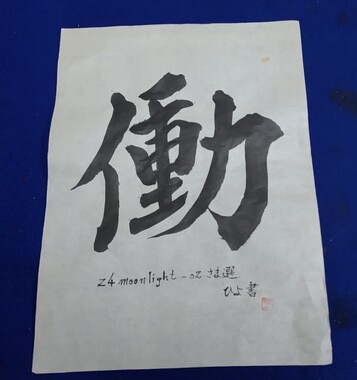 働
z4 moonlight-oz さま選
ひよ書